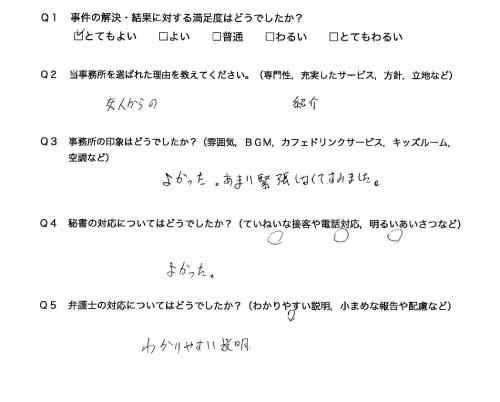 Q1 事件の解決・結果に対する満足度はどうでしたか?
☑とてもよい □よい □普通 □わるい □とてもわるい
Q2 当事務所を選ばれた理由を教えてください。(専門性,充実したサービス,方針,立地など)
友人からの 紹介
Q3 事務所の印象はどうでしたか?(雰囲気,BGM,カフェドリンクサービス,キッズルーム,
空調など)
よかった。あまり緊張しなくてすみました。
Q4 秘書の対応についてはどうでしたか?(ていねいな接客や電話対応,明るいあいさつなど)
よかった。
Q5 弁護士の対応についてはどうでしたか?(わかりやすい説明,小まめな報告や配慮など)
わかりやすい説明